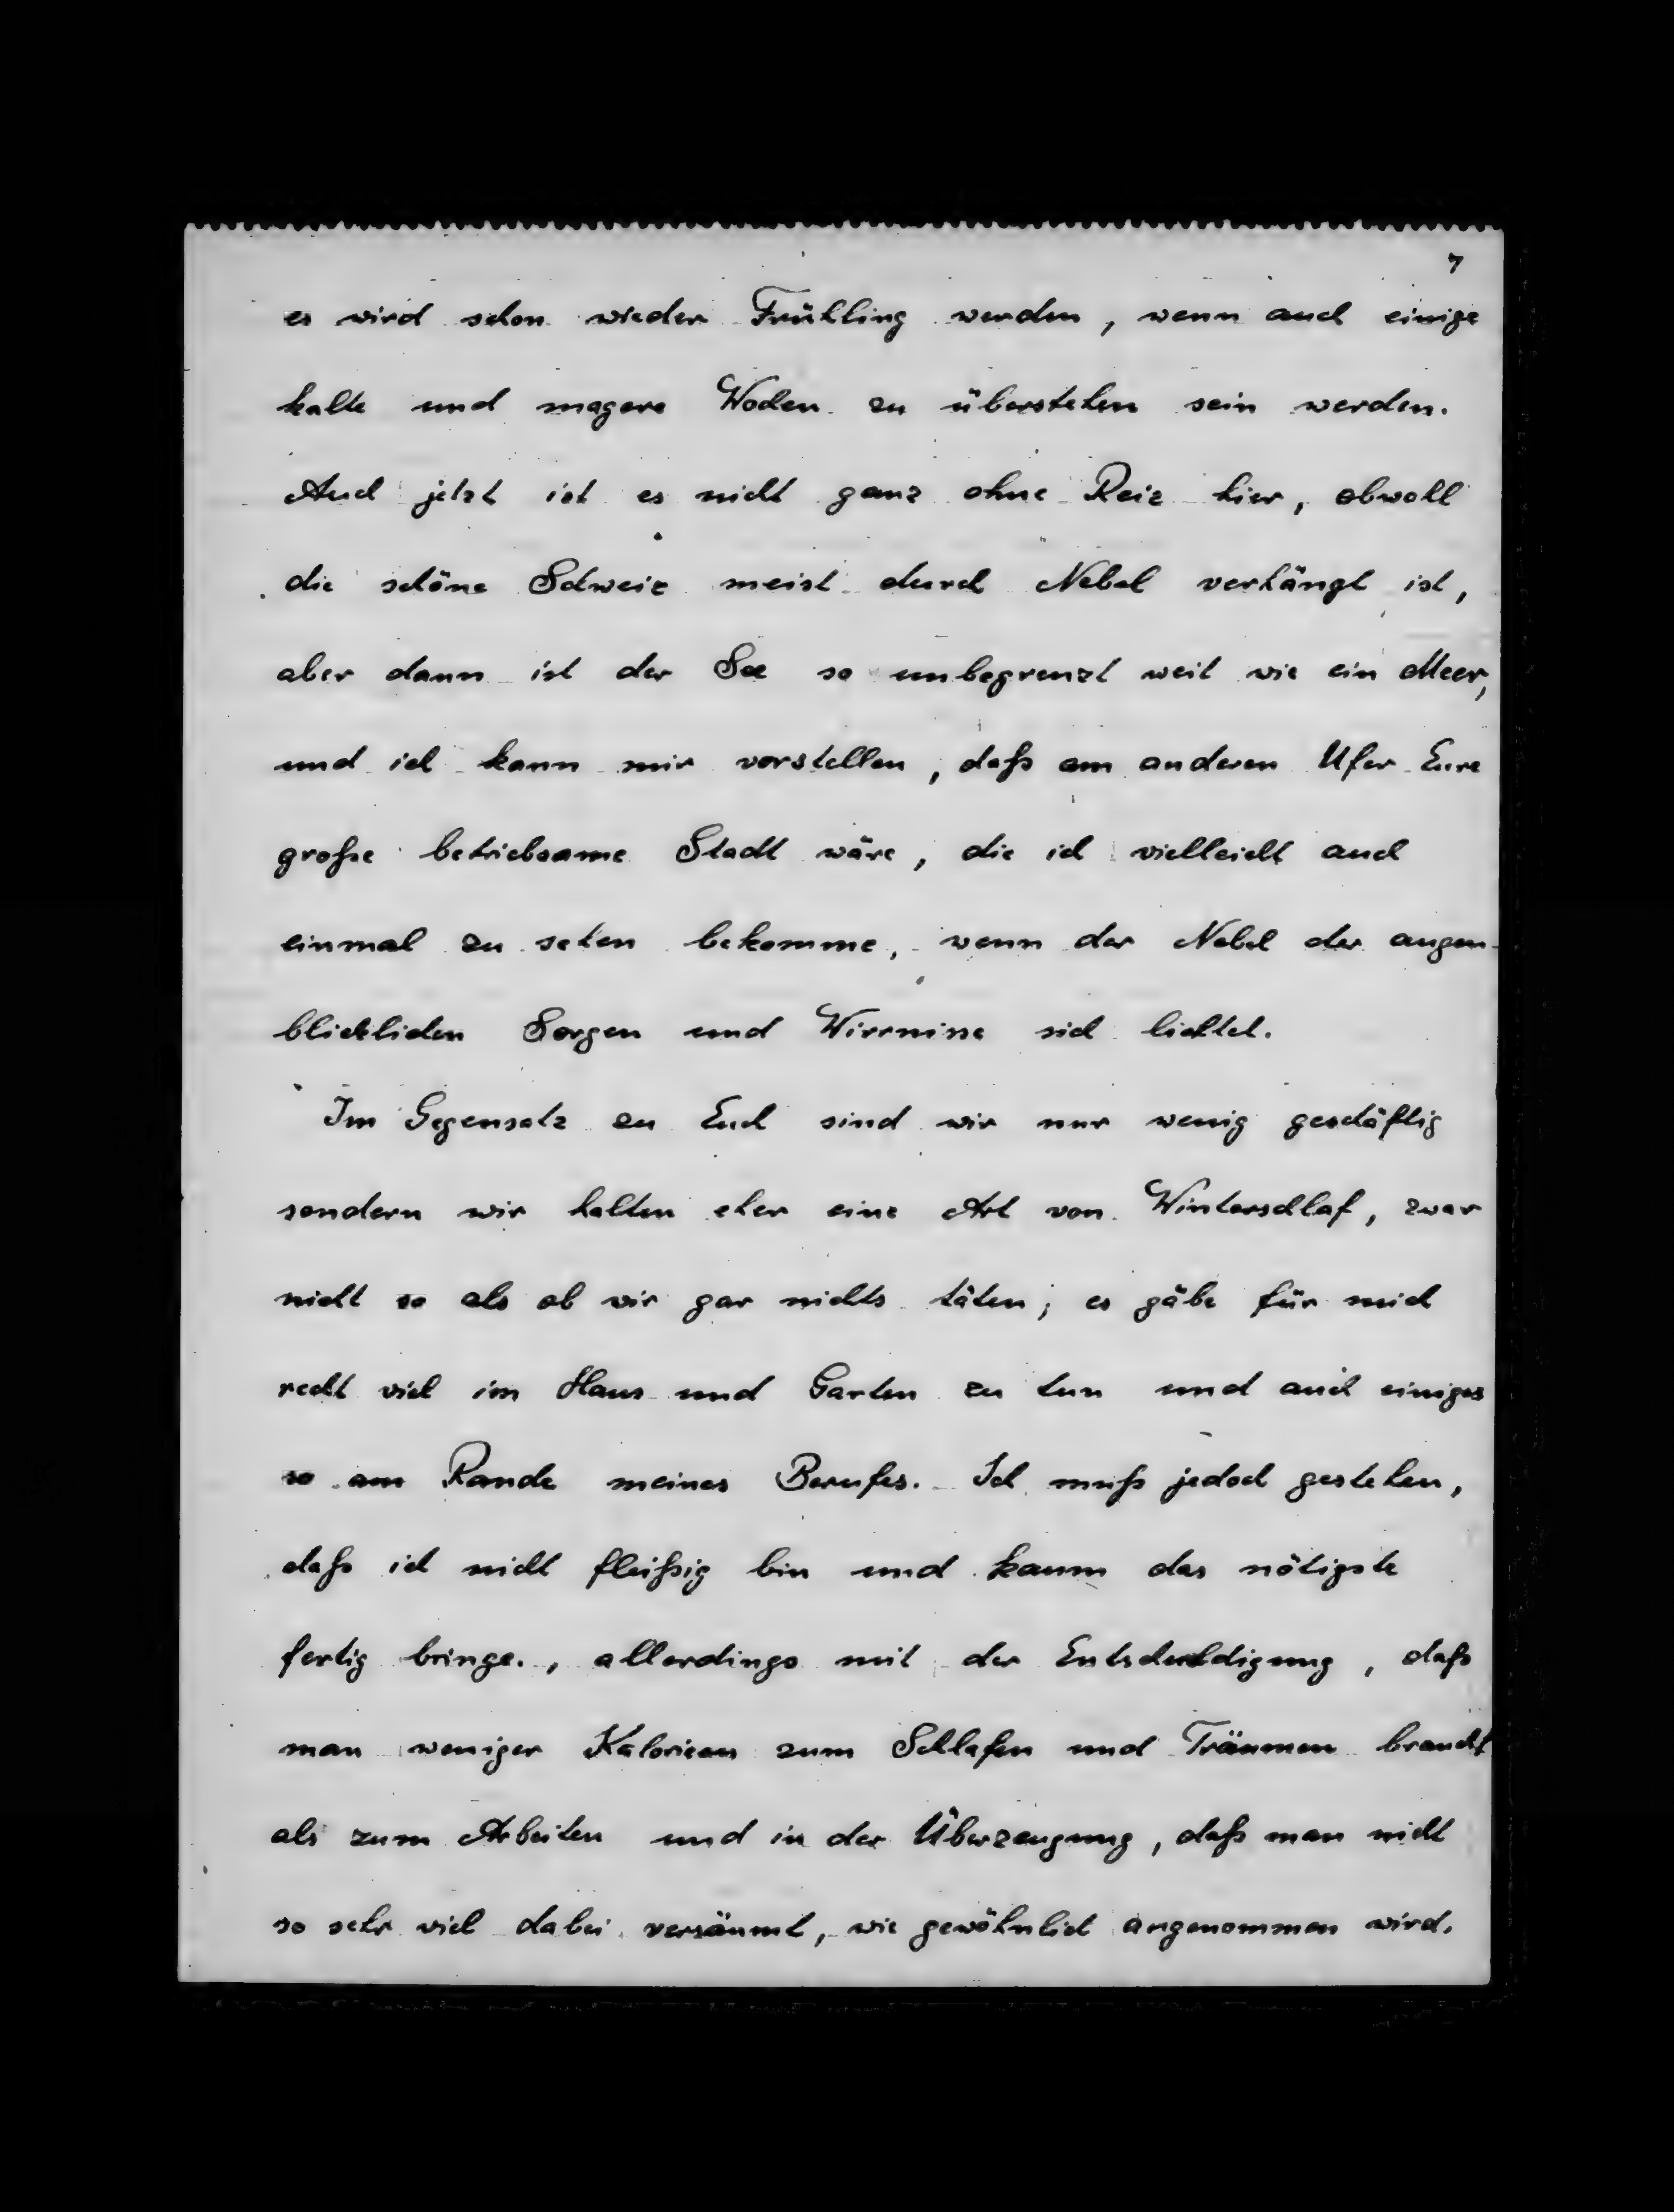 7
es wird schon wieder Frühling werden, wenn auch einige
kalte und magere Wochen zu überstehen sein werden.
Auch jetzt ist es nicht ganz ohne Reiz hier, obwohl
die schöne Schweiz meist durch Nebel verhängt ist,
aber dann ist der See so unbegrenzt weit wie ein Meer,
und ich kann mir vorstellen, daß am anderen Ufer Eure
große betriebsame Stadt wäre, die ich vielleicht auch
einmal zu sehen bekomme, wenn der Nebel der augen-
blicklichen Sorgen und Wirrnisse sich lichtet.
Im Gegensatz zu Euch sind wir nur wenig geschäftig
sondern wir halten eher eine Art von Winterschlaf, zwar
nicht so als ob wir gar nichts täten; es gäbe für mich
recht viel im Haus und Garten zu tun und auch einiges
so am Rande meines Berufes. Ich muß jedoch gestehen,
daß ich nicht fleißig bin und kaum das nötigste
fertig bringe., allerdings mit der Entschuldigung, daß
man weniger Kalorien zum Schlafen und Träumen braucht
als zum Arbeiten und in der Überzeugung, daß man nicht
so sehr viel dabei versäumt, wie gewöhnlich angenommen wird.